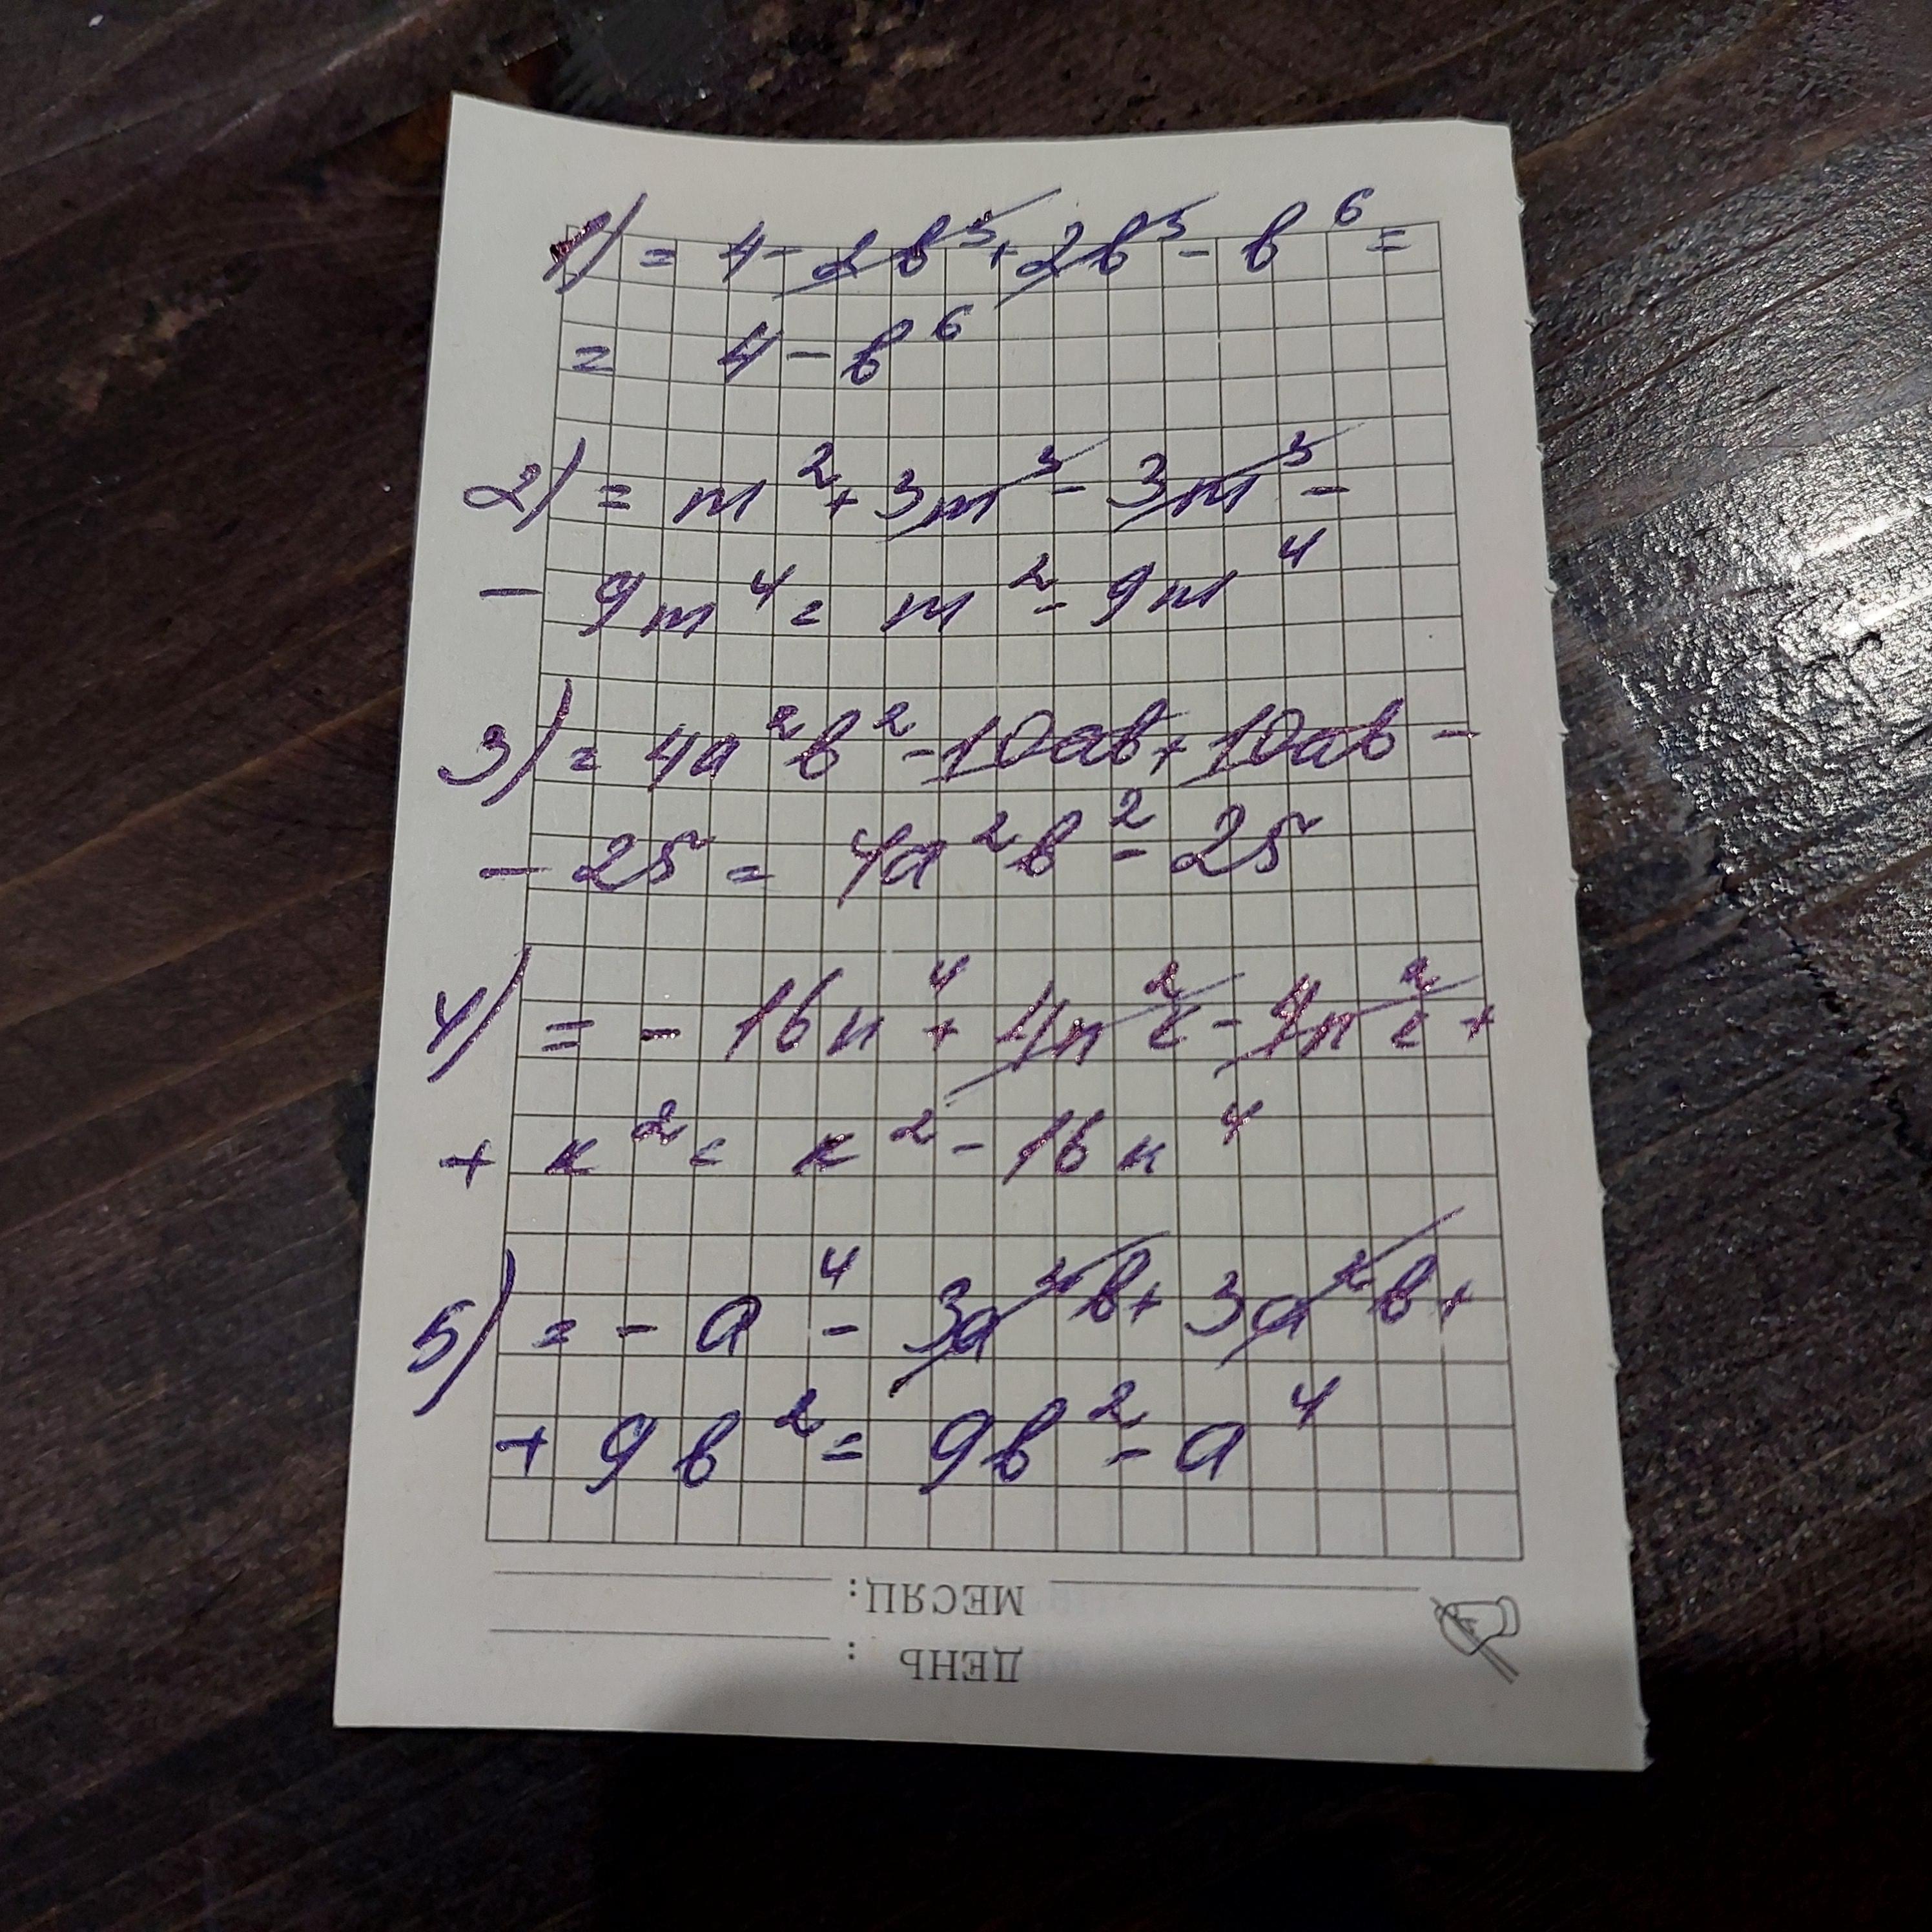 1) = 4 - 2b³ + 2b³ - b⁶ =
= 4 - b⁶
2) = m² + 3m³ - 3m³ -
- 9m⁴ = m² - 9m⁴
3) = 4a²b² - 10ab + 10ab -
- 25 = 4a²b² - 25
4) = - 16n⁴ + 4n²c - 4n²c +
+ к² = к² - 16n⁴
5) = - a⁴ - 3a²b + 3a²b +
+ 9b² = 9b² - a⁴
МЕСЯЦ:
ДЕНЬ :